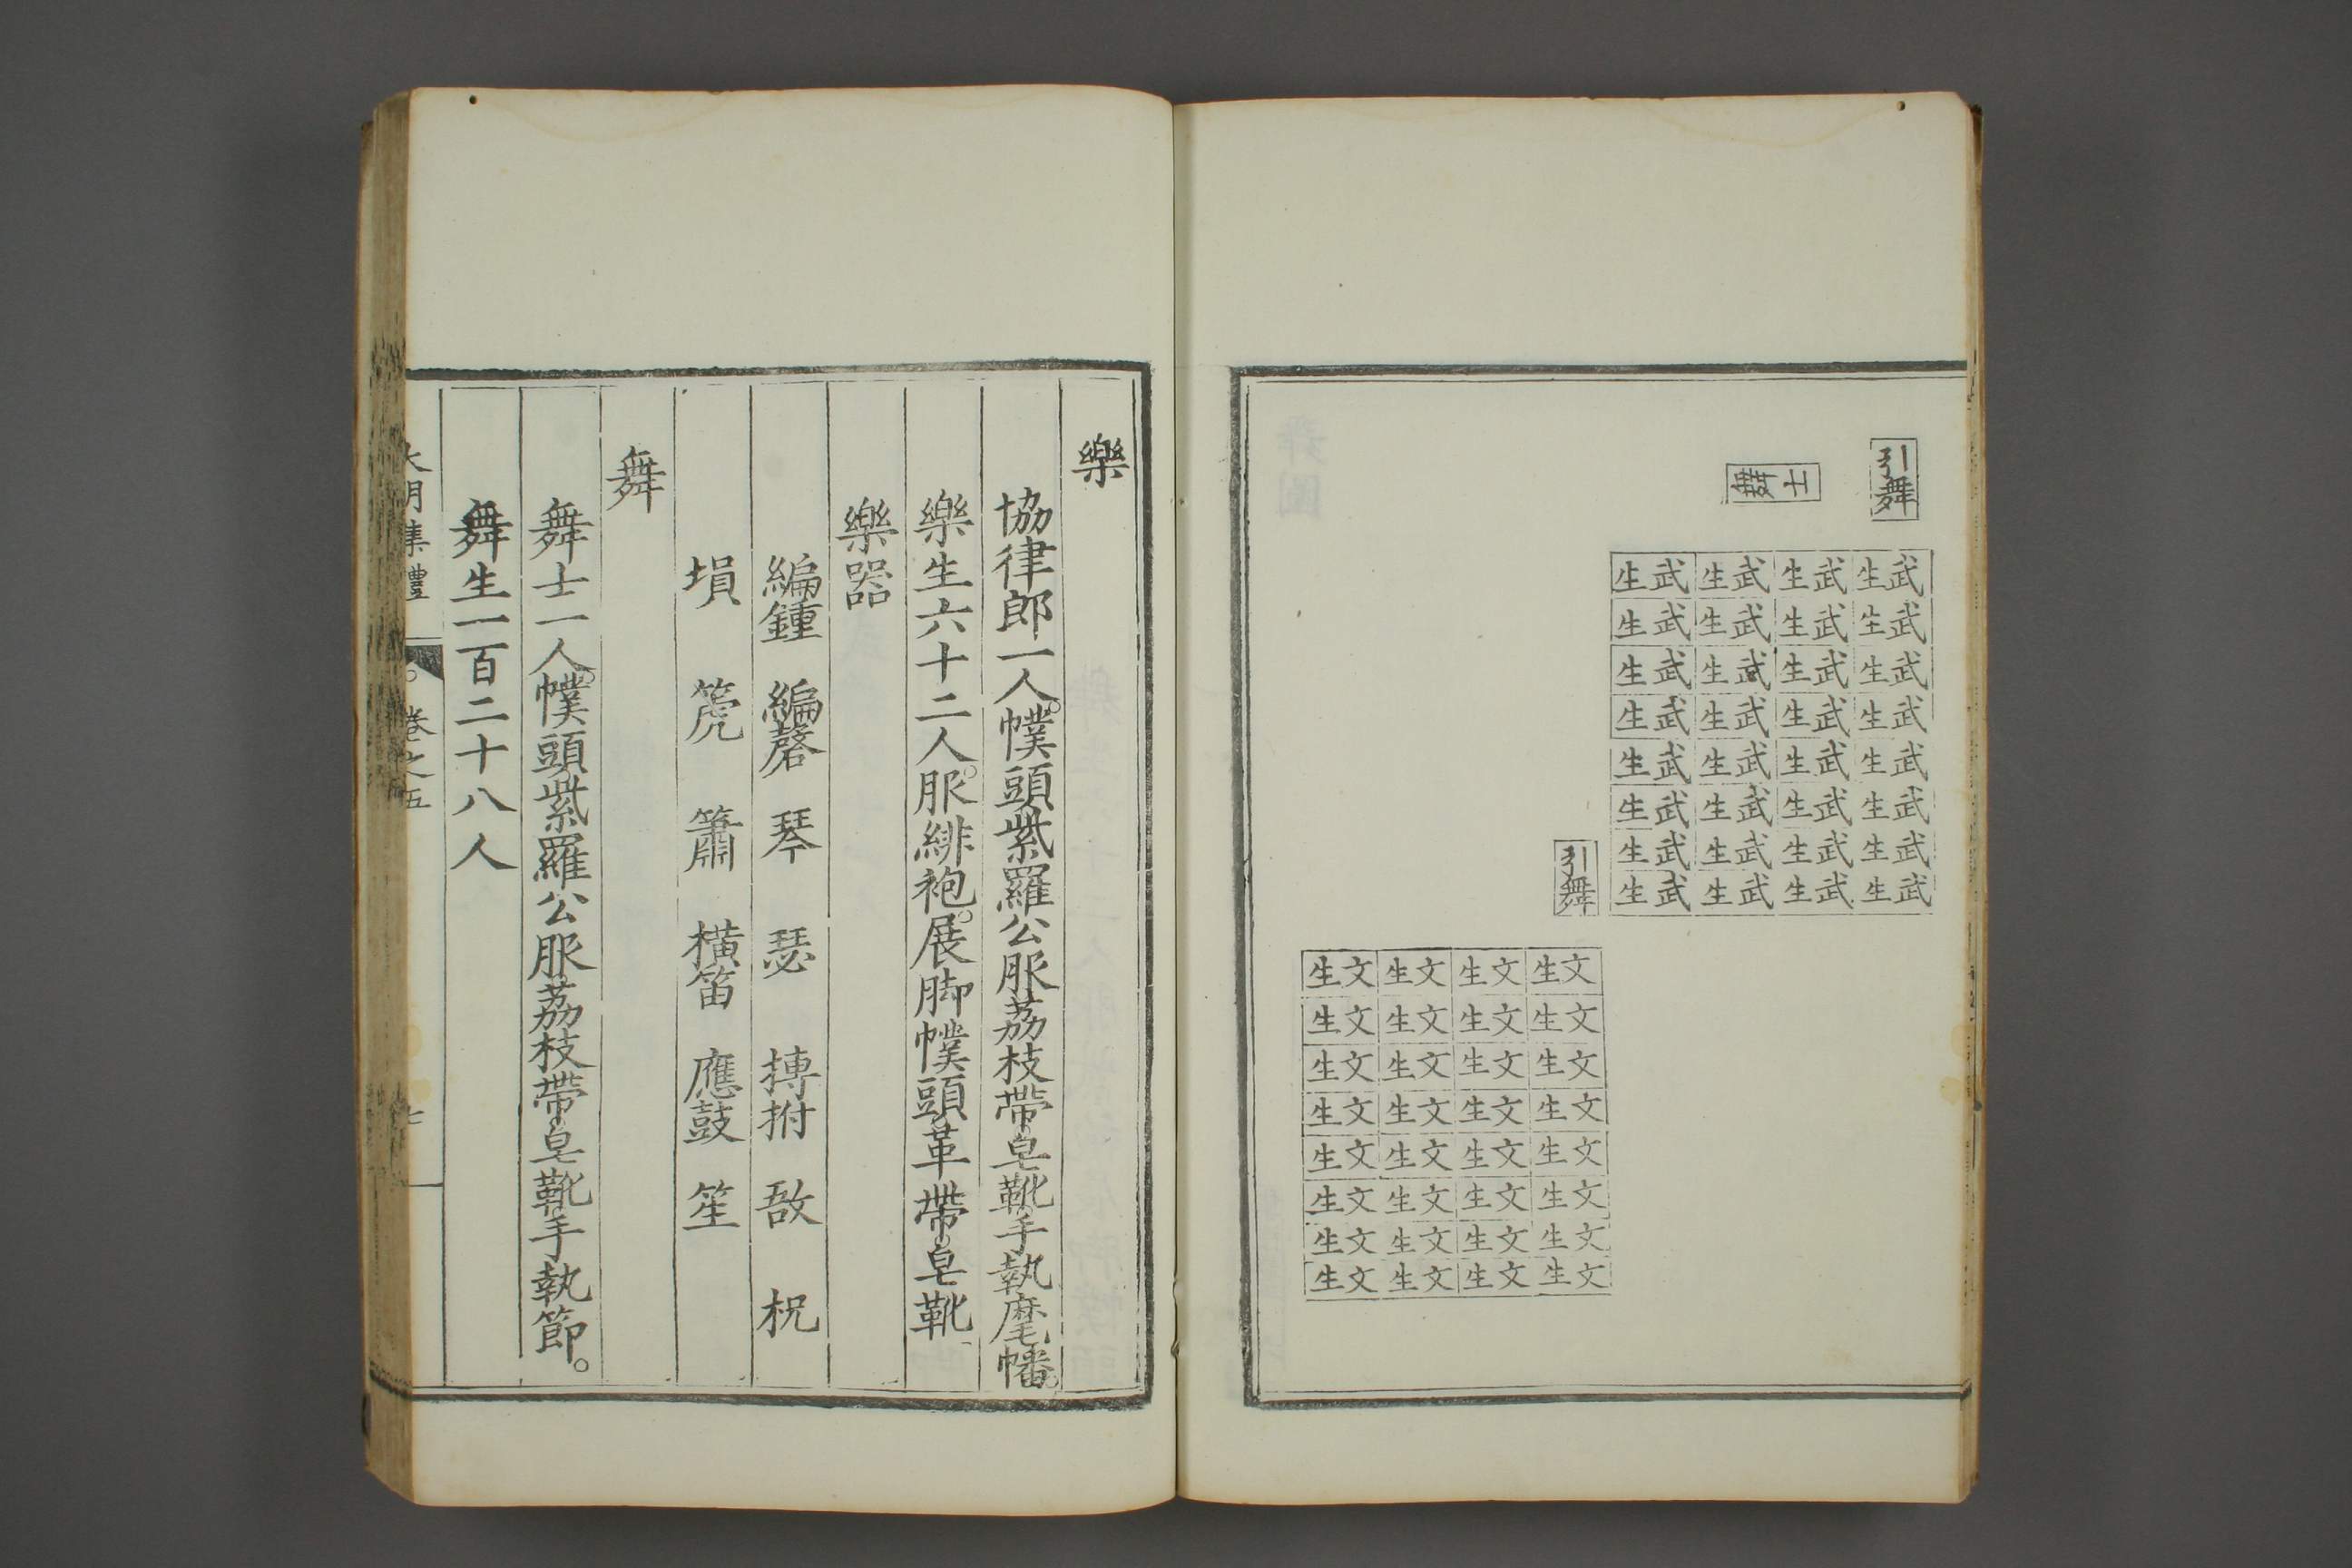 引舞
舞士
武生 武生 武生 武生
武生 武生 武生 武生
武生 武生 武生 武生
武生 武生 武生 武生
武生 武生 武生 武生
武生 武生 武生 武生
武生 武生 武生 武生
武生 武生 武生 武生
引舞
文生 文生 文生 文生
文生 文生 文生 文生
文生 文生 文生 文生
文生 文生 文生 文生
文生 文生 文生 文生
文生 文生 文生 文生
文生 文生 文生 文生
文生 文生 文生 文生
樂
協律郎一人。幞頭紫羅公服荔枝帶皂靴手執麾幡。
樂生六十二人。服緋袍。展脚幞頭革帶皂靴
樂器
編鍾 編磬 琴 瑟 搏拊 敔 柷
塤 箎 簫 橫笛 應鼓 笙
舞
舞士一人。幞頭紫羅公服荔枝帶皂靴手執節。
舞生一百二十八人
大明集禮 卷之五 七